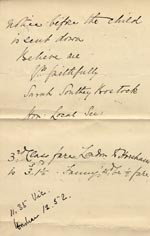 notice before the child
is sent down
Believe me
Yrs faithfully
Sarah Southey
Hon: Local Sec:
3rd Class fare London to
10 3.1½ - & fare
11.35 Vic.
Horsham 12.52.